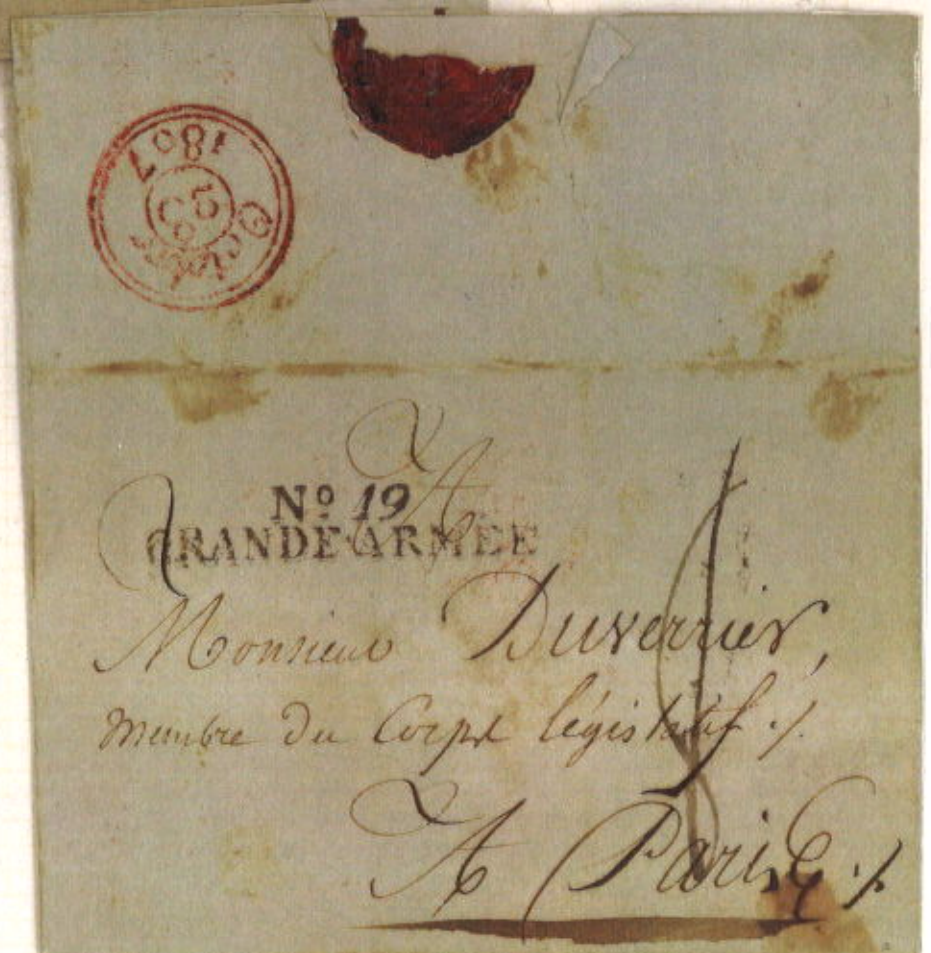 Octobre
1807
A
Nº 19
GRANDE-ARMÉE
Monsieur Duverrier,
membre du Corps législatif ./.
A Paris ./.